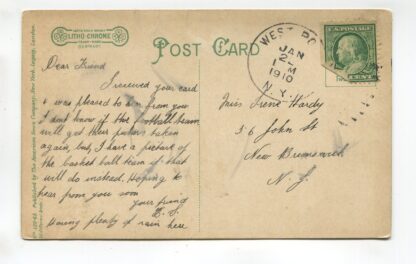 LITHO-CHROME
TRADE MARK
GERMANY
POST CARD
WEST PO
JAN
2-
1 M
1910
N.Y.
U.S. POSTAGE
Dear Friend
I received your card
& was pleased to n from you
I don't know if the football team
will get their picture taken
again, but, I have a picture of
the basket ball team & that
will do instead. Hoping to
hear from you soon
your friend
Having plenty of rain here
Miss Irene Hardy
36 John St
New Brunswick
N. J.
Published by The American News Company, New York, Leipzig, Dresden.